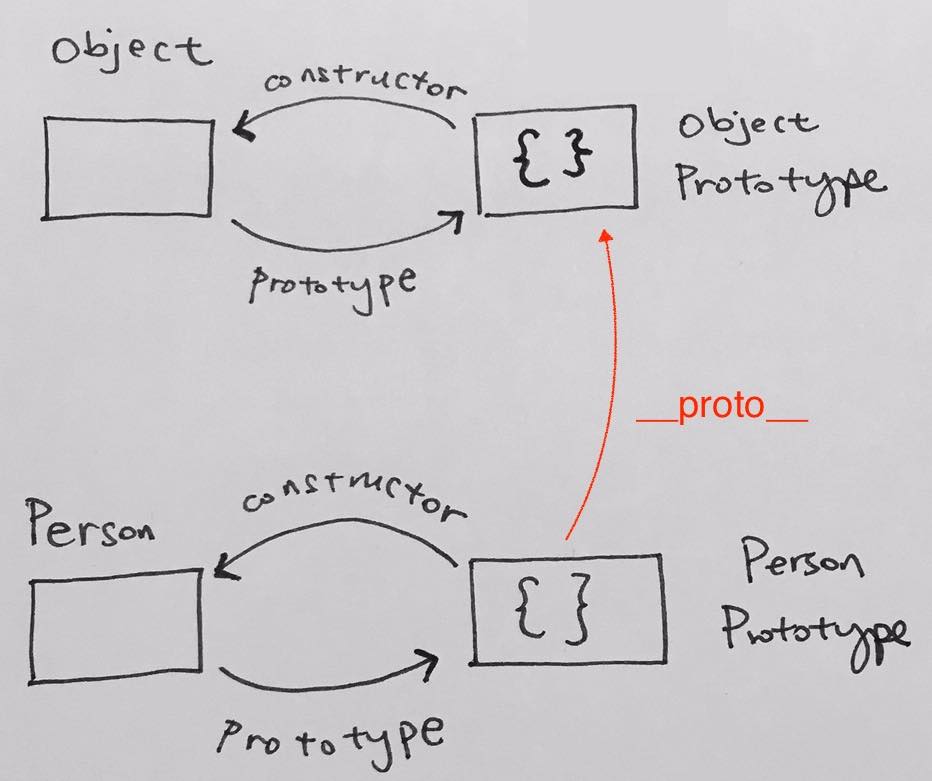 Object
constructor
{ }
Object
Prototype
Prototype
__proto__
Person
constructor
{ }
Person
Prototype
Prototype